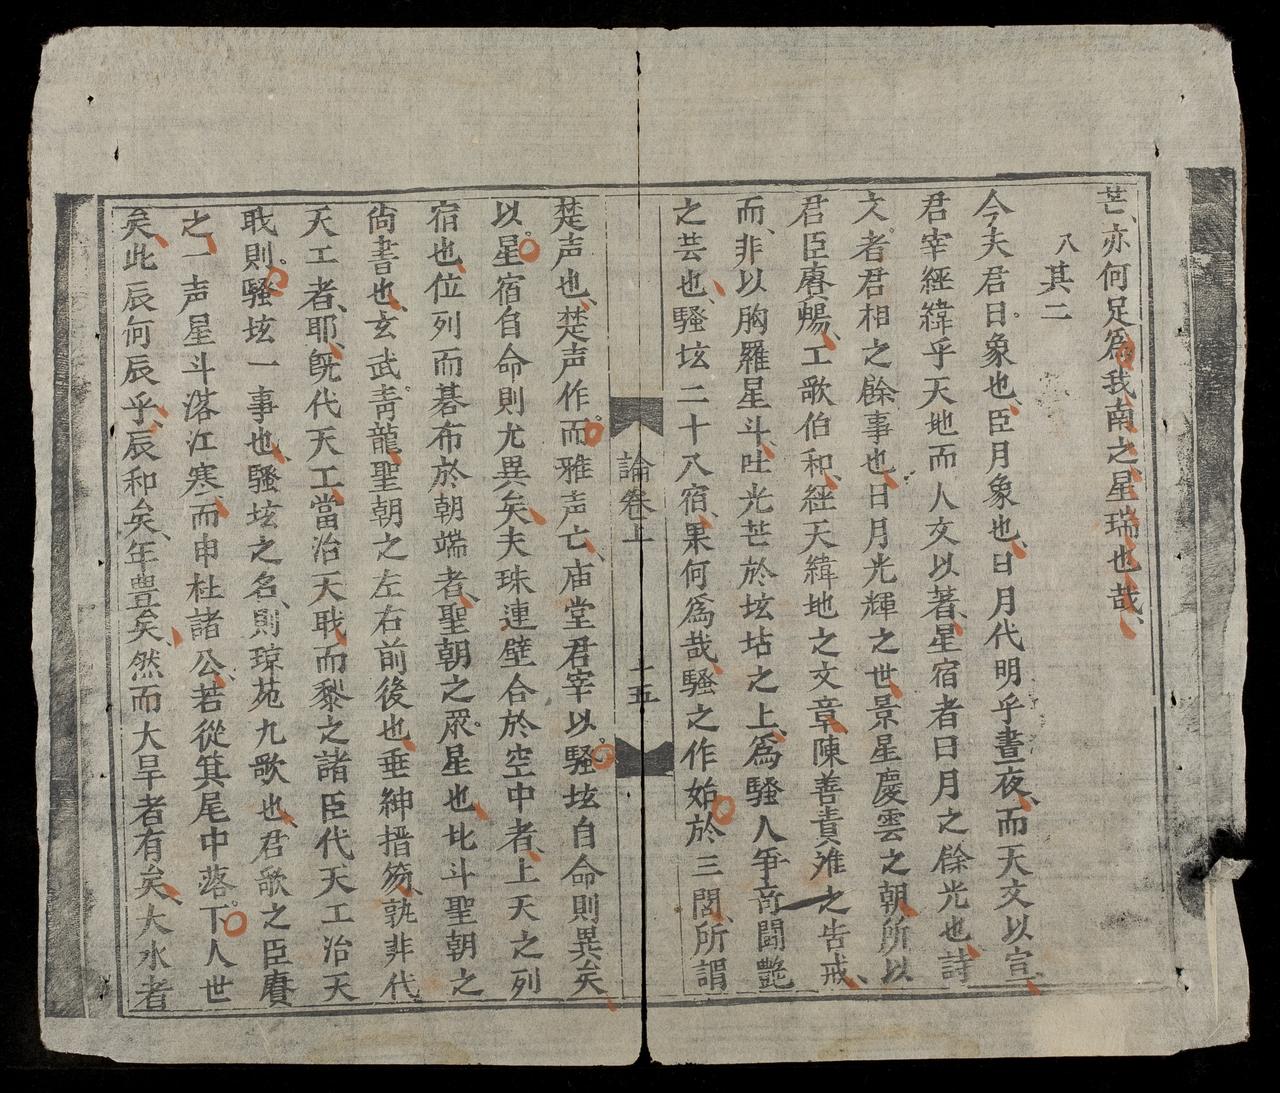 芒亦何足爲我南之星瑞也哉
八其二
今夫君日象也臣月象也日月代明乎晝夜而天文以宣
君宰經緯乎天地而人文以著星宿者日月之餘光也詩
文者君相之餘事也日月光輝之世景星慶雲之朝所以
君臣賡暢工歌伯和經天緯地之文章陳善責难之告戒
而非以胸羅星斗吐光芒於坛坫之上爲騷人爭奇鬪艷
之芸也騷坛二十八宿果何爲哉騷之作始於三閭所謂
論卷上
十五
楚声也楚声作而雅声亡庙堂君宰以騷坛自命則異矣
以星宿自命則尤異矣夫珠連壁合於空中者上天之列
宿也位列而碁布於朝端者聖朝之眾星也北斗聖朝之
尙書也玄武靑龍聖朝之左右前後也垂紳搢笏孰非代
天工者耶旣代天工當治天戝而黎之諸臣代天工治天
戝則騷坛一事也騷坛之名則琼苑九歌也君歌之臣賡
之一声星斗落江寒而申杜諸公若從箕尾中落下人世
矣此辰何辰乎辰和矣年豊矣然而大旱者有矣大水者